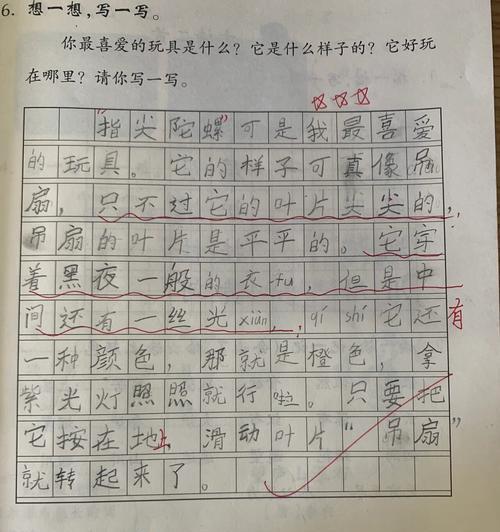 6. 想一想，写一写。
你最喜爱的玩具是什么？它是什么样子的？它好玩
在哪里？请你写一写。
"指尖陀螺"可是我最喜爱
的玩具。它的样子可真像吊
扇，只不过它的叶片尖尖的，
吊扇的叶片是平平的。它穿
着黑夜一般的衣fu，但是中
间还有一丝光xiàn，qí shí它还有
一种颜色，那就是橙色，拿
紫光灯照照就行啦。只要把
它按在地上滑动叶片"吊扇"
就转起来了。